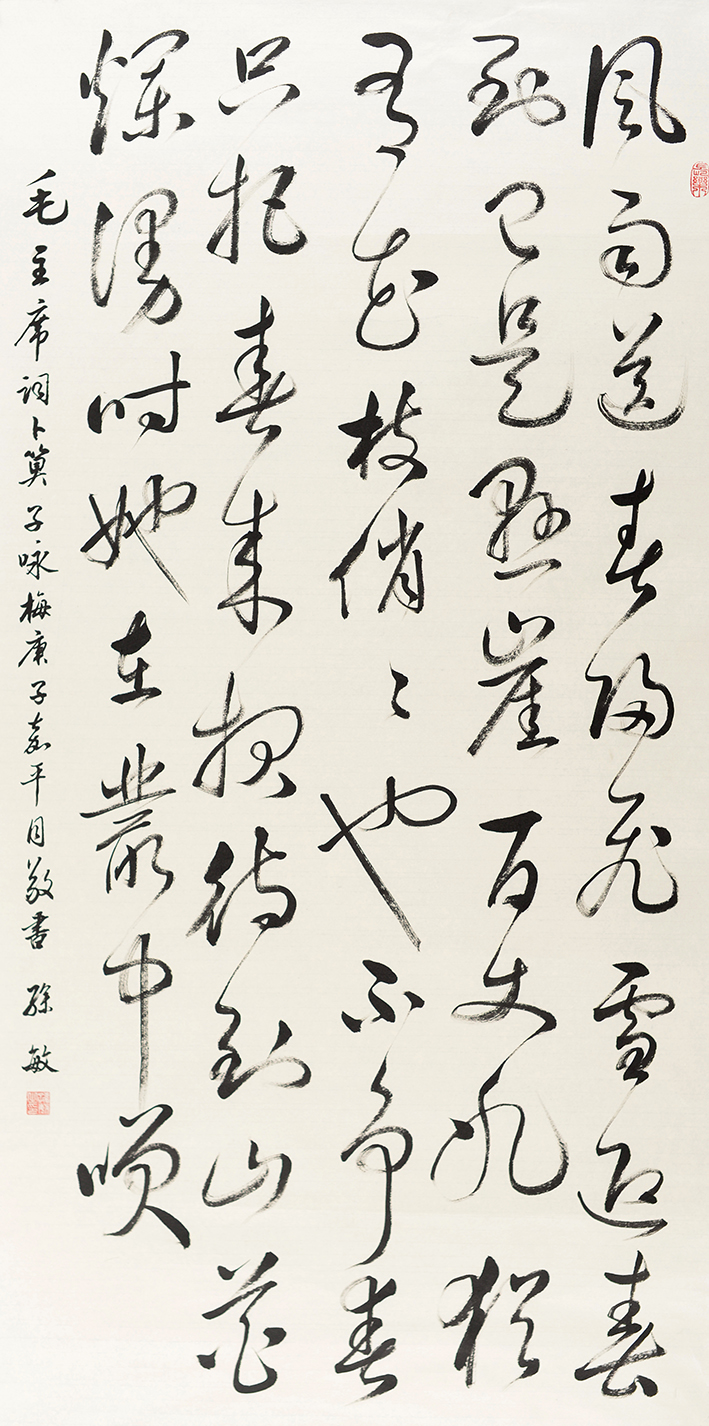 風雨送春歸飛雪迎春
到已是懸崖百丈冰猶
有花枝俏〻也不争春
只把春来报待到山花
爛漫时她在叢中咲
毛主席词卜算子咏梅庚子嘉平月敬書 孫敏